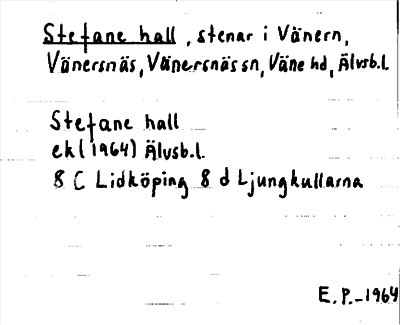 Stefane hall, stenar i Vänern,
Vänersnäs, Vänersnäs sn, Väne hd, Älvsb.l.
Stefane hall
ek (1964) Älvsb.l.
8 C Lidköping 8 d Ljungkullarna
E. P. - 1964